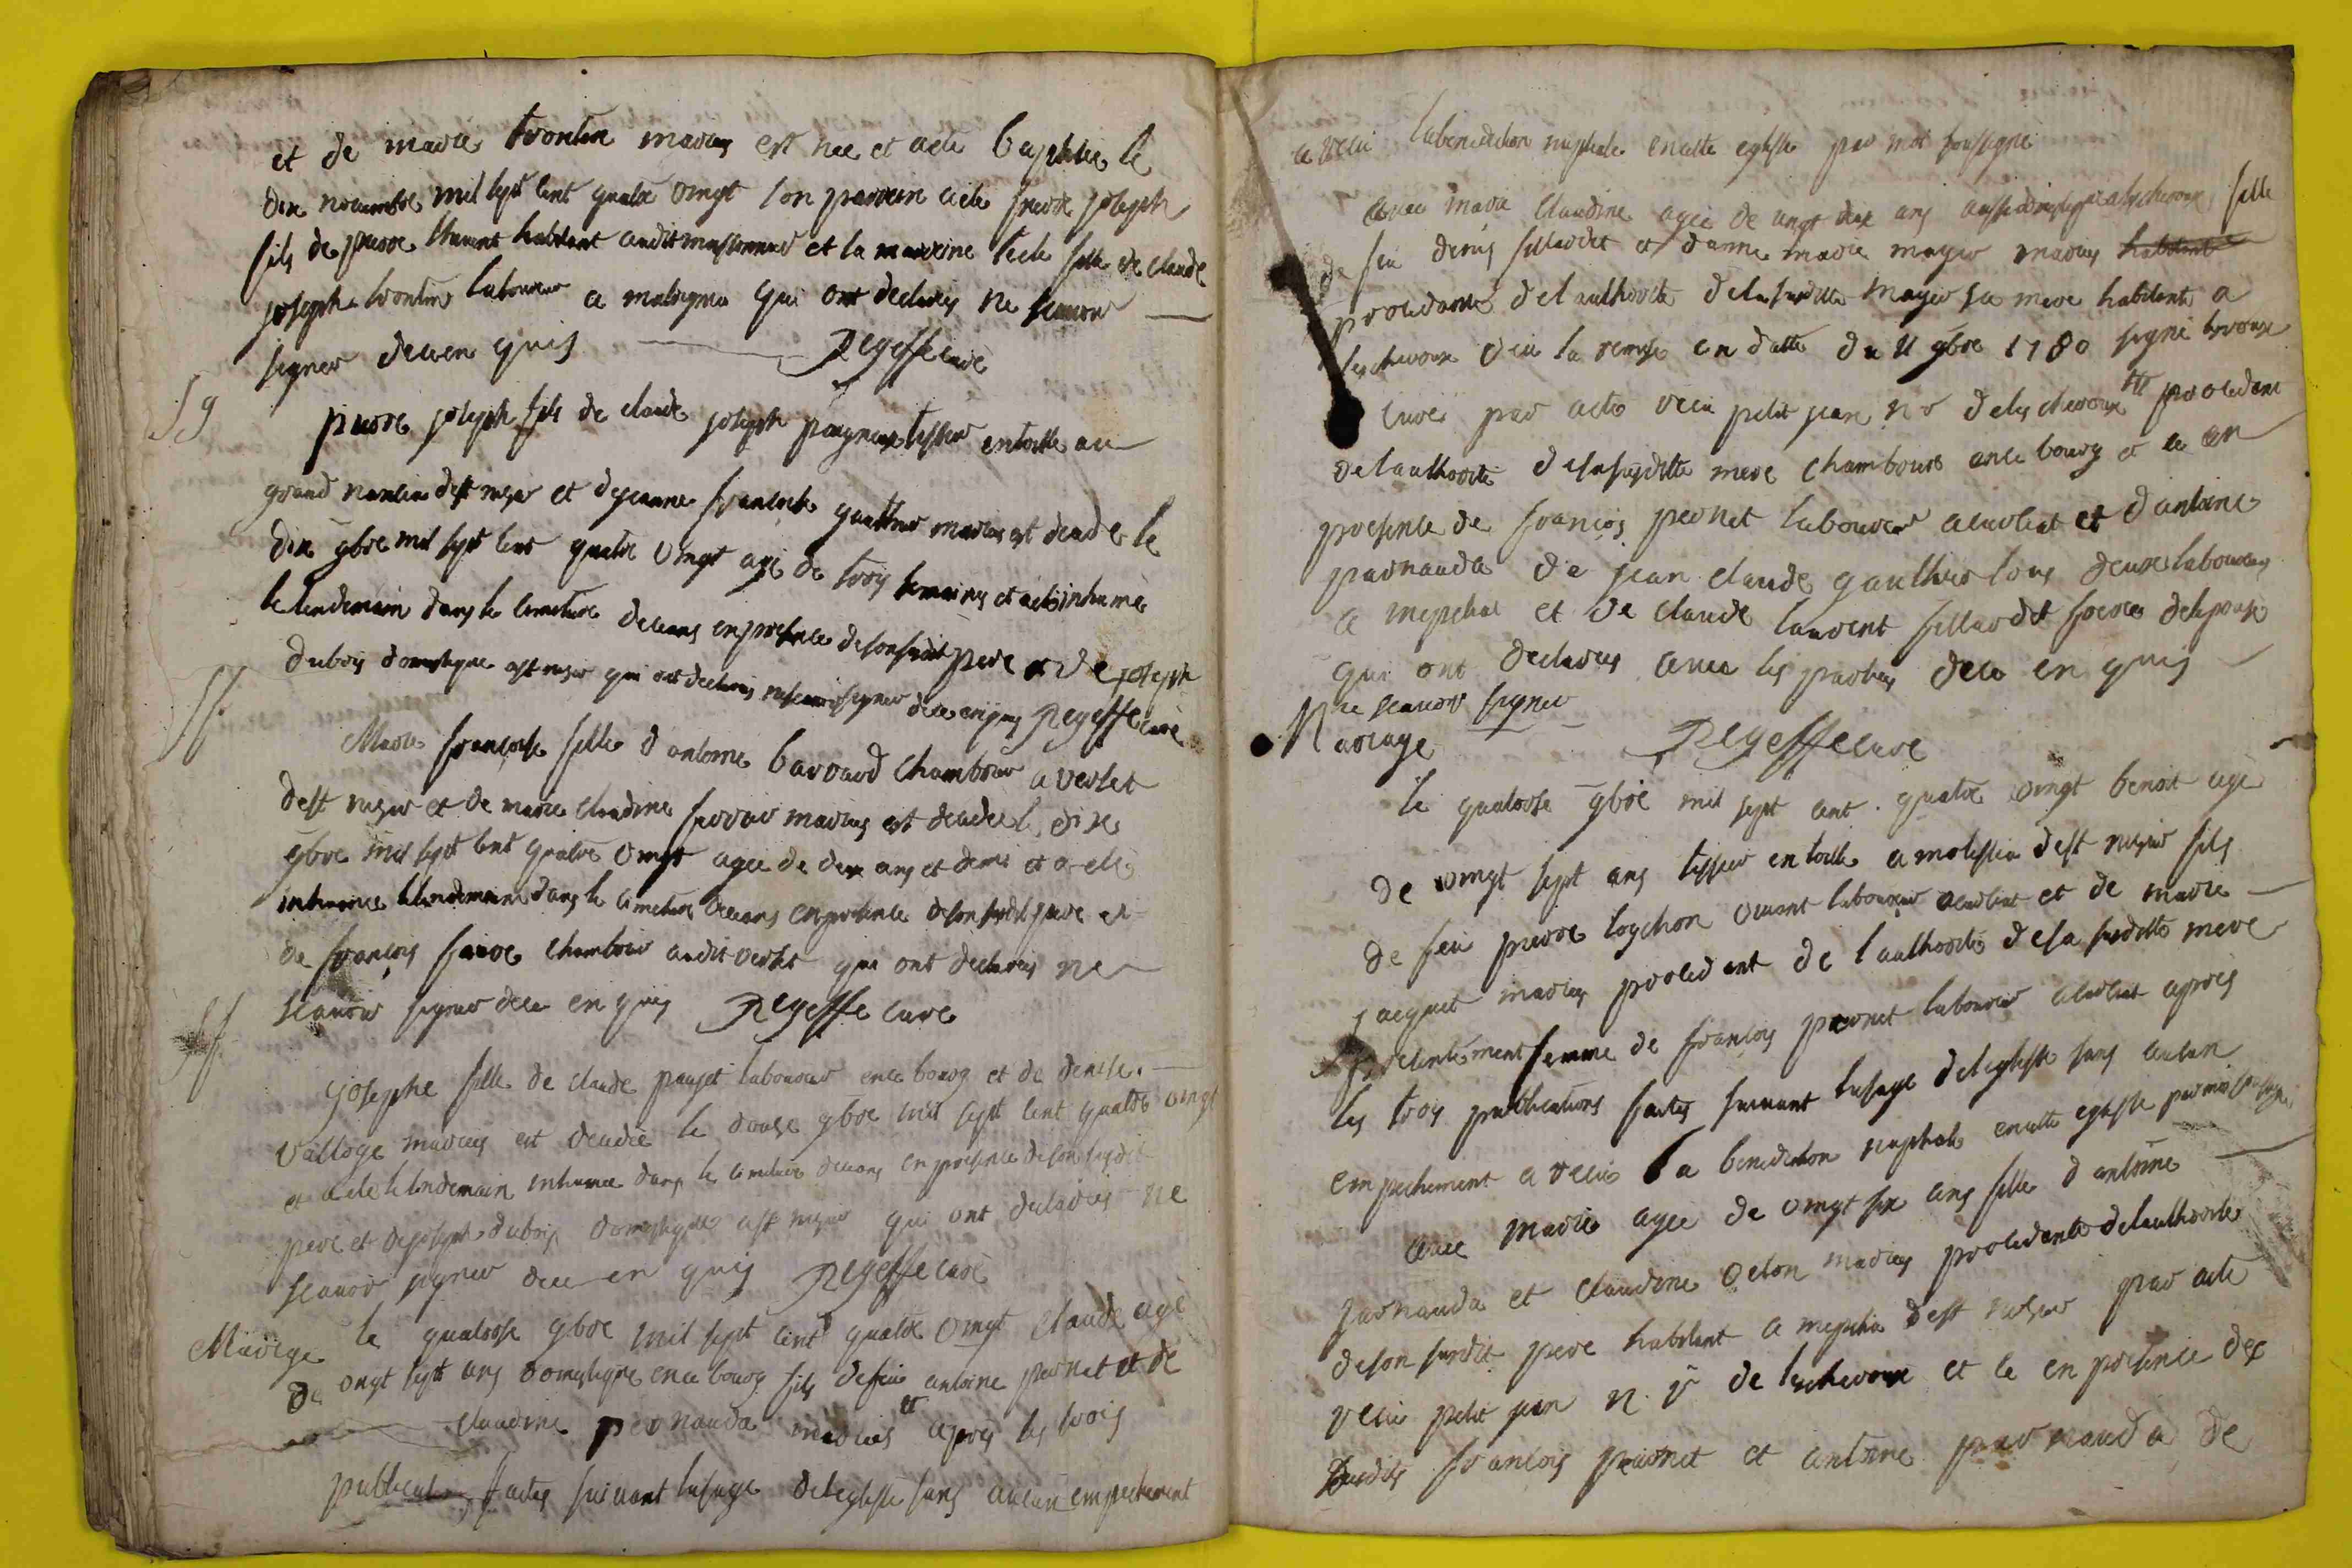 et de marie trontin maries est nee et a ete baptisee le
dix novembre mil sept cent quatre vingt son parrein a ete pierre joseph
fils de pierre habitant audit et la marreine fille de claude
joseph laboureur a qui ont declares ne scavoir
signer de ce en quis Regeffe curé
pierre joseph fils de claude joseph tissier en toille au
grand d'est mezier et de jeanne francoise maries est decede le
dix 9bre mil sept cent quatre vingt agé de trois semaines et a ete inhumé
le lendemain dans le cimetiere de ceans en presence de son susdit pere et de joseph
dubois domestique est mezier qui ont declares ne scavoir signer de ce enquis Regeffe curé
Marie francoise fille d antoine barraud chambrier a verset
d'est mezier et de marie claudine maries est decedee le dix
9bre mil sept cent quatre vingt agee de deux ans et demi et a ete
inhumee le lendemain dans le cimetiere de ceans en presence de son susdit pere et
de françois chambrier audit verset qui ont declares ne
scavoir signer de ce en quis Regeffe curé
josephe fille de claude pauget laboureur en ce bourg et de denise
valloge maries est decedée le douze 9bre mil sept cent quatre vingt
et a ete le lendemain inhumee dans le cimetiere de ceans en presence de son susdit
pere et de joseph dubois domestique est mezier qui ont declares ne
scavoir signer de ce en quis Regeffe curé
Mariage le quatorse 9bre mil sept cent quatre vingt claude agé
de vingt sept ans domestique en ce bourg fils de feu antoine pernet et de
claudine pernauda mariés et après les trois
publications faites suivant l'usage de l'eglise sans aucun empechement
a recu la benediction nuptiale en cette eglise par moi soussigné
avec marie claudine agée de vingt deux ans aussi domestique a lescheroux fille
de feu denis fillardet et d anne marie mayer maries habitant
procedante de l authorite de la susditte mayer sa mere habitante a
lescheroux veu la remise en datte du 11 9bre 1780 signé
curé par acte recu petit jean nr de lescheroux lle procedant
de l authorité de la susditte mere chambriere en ce bourg et ce en
presence de françois pernet laboureur a curciat et d antoine
parnauda de jean claude gauthier tous deux laboureurs
a mepilliat et de claude laurent fillardet frere de l epouse
qui ont declares avec les parties de ce en quis
ne scavoir signer
Mariage Regeffe curé
le quatorse 9bre mil sept cent quatre vingt benoit agé
de vingt sept ans tissier en toille a d'est mezier fils
de feu pierre vivant laboureur a curciat et de marie
jacquet maries procedant de l authorité de la susditte mere
presentement femme de françois pernet laboureur a curciat après
les trois publications faites suivant l'usage de l eglise sans aucun
empechement a recu la benediction nuptiale en cette eglise par moi soussigné
avec marie agée de vingt six ans fille d antoine
parnauda et claudine maries procedante de l authorité
de son susdit pere habitant a d'est mezier par acte
recu petit jean n r de lescheroux et ce en presence des
susdits françois pernet et antoine parnauda de